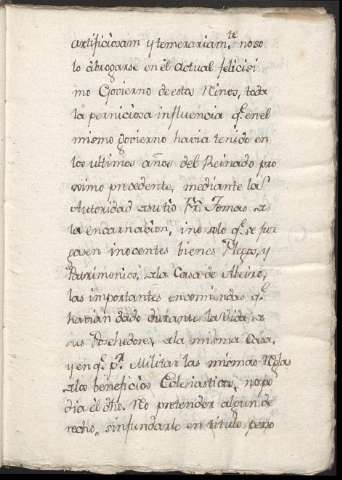 artificiosam y temerariam.te noso
lo abrogarse en él actual felicisi
mo Govierno de estos Rinos, toda
la perniciosa influencia q.e en el
mismo govierno havia tenido en
los ultimos años del Reinado pro
ximo precedente, mediante la
Autoridad a su tio Fr. Tomas
la encarnacion, ino solo q.e se juz
gasen inocentes bienes y
Patrimonio, a la Casa de Abeiro,
las importantes encomiendas q.e
havian dado durante la Vida,
sus Poschedores, a la misma Casa,
y en q.e p.r Militar las mismas Reglas
a los beneficios Eclesiasticos, no po
dia él dho. No pretender algun de
recho, sinfundarle en titulo